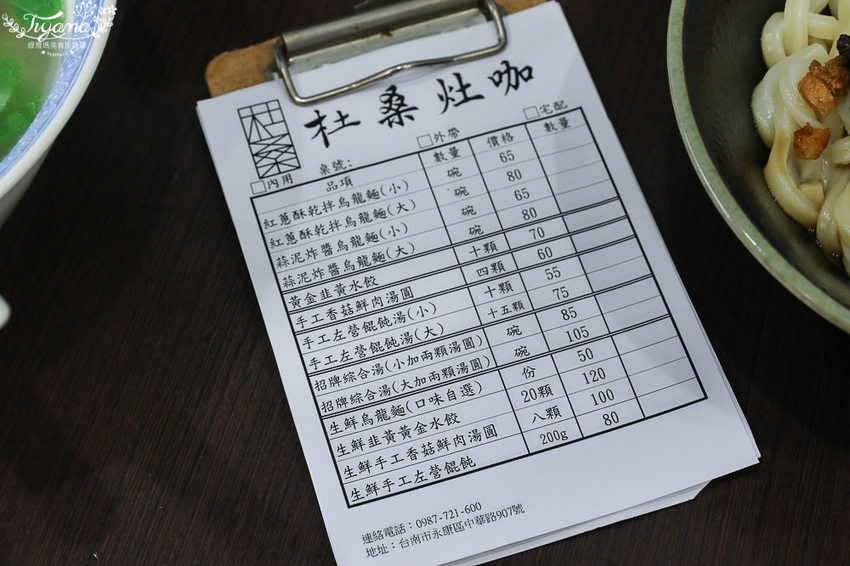 Tiyama
緹雅瑪美食旅遊趣
杜桑
杜桑灶咖
□內用 桌號: □外帶 □宅配
品項 數量 價格 數量
紅蔥酥乾拌烏龍麵(小) 碗 65
紅蔥酥乾拌烏龍麵(大) 碗 80
蒜泥炸醬烏龍麵(小) 碗 65
蒜泥炸醬烏龍麵(大) 碗 80
黃金韭黃水餃 十顆 70
手工香菇鮮肉湯圓 四顆 60
手工左營餛飩湯(小) 十顆 55
手工左營餛飩湯(大) 十五顆 75
招牌綜合湯(小加兩顆湯圓) 碗 85
招牌綜合湯(大加兩顆湯圓) 碗 105
生鮮烏龍麵(口味自選) 份 50
生鮮韭黃黃金水餃 20顆 120
生鮮手工香菇鮮肉湯圓 八顆 100
生鮮手工左營餛飩 200g 80
連絡電話：0987-721-600
地址：台南市永康區中華路907號